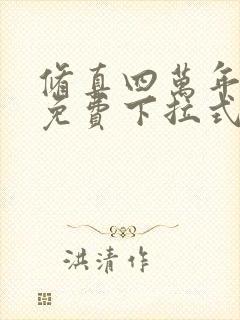 脩真四萬年
免費下拉式
洪清作